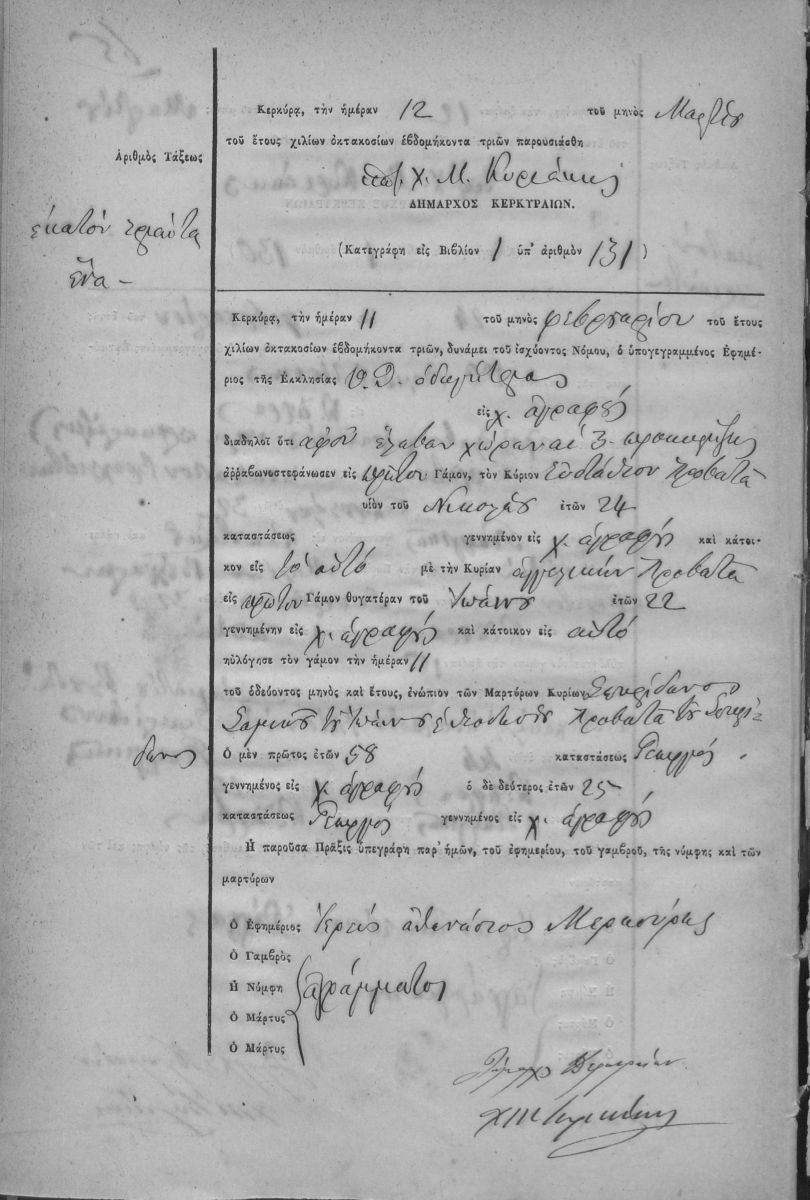 Κερκύρᾳ, τὴν ἡμέραν 12 τοῦ μηνὸς Μαρτίου
τοῦ ἔτους χιλίων ὀκτακοσίων ἑβδομήκοντα τριῶν παρουσιάσθη
Ἀριθμὸς Τάξεως
Χ. Μ. Κυριάκης
ΔΗΜΑΡΧΟΣ ΚΕΡΚΥΡΑΙΩΝ.
ἑκατὸν τριάντα
ἕνα –
(Κατεγράφη εἰς Βιβλίον 1 ὑπ' ἀριθμὸν 131)
Κερκύρᾳ, τὴν ἡμέραν 11 τοῦ μηνὸς φεβρουαρίου τοῦ ἔτους
χιλίων ὀκτακοσίων ἑβδομήκοντα τριῶν, δυνάμει τοῦ ἰσχύοντος Νόμου, ὁ ὑπογεγραμμένος Ἐφημέ-
ριος τῆς Ἐκκλησίας ὁδηγήτριας
εἰς χ. ἀγραφούς
διαδηλοῖ ὅτι ἀφοῦ ἔλαβαν χώραν αἱ 3 προκηρύξεις
ἀρραβωνοστεφάνωσεν εἰς πρῶτον Γάμον, τὸν Κύριον Εὐστάθιον Προβατᾶ
υἱὸν τοῦ Νικολάου ἐτῶν 24
καταστάσεως γεννημένον εἰς χ. ἀγραφούς καὶ κάτοι-
κον εἰς τὸ αὐτό μὲ τὴν Κυρίαν ἀγγελικὴν Προβατᾶ
εἰς πρῶτον Γάμον θυγατέραν τοῦ Ἰωάννου ἐτῶν 22
γεννημένην εἰς χ. ἀγραφούς καὶ κάτοικον εἰς αὐτό
ηὐλόγησε τὸν γάμον τὴν ἡμέραν 11
τοῦ ὁδεύοντος μηνὸς καὶ ἔτους, ἐνώπιον τῶν Μαρτύρων Κυρίων Σπυρίδωνος
τοῦ Ἰωάννου Προβατᾶ τοῦ Σπυρί-
δωνος
Ὁ μὲν πρῶτος ἐτῶν 58 καταστάσεως Γεωργός
γεννημένος εἰς χ. ἀγραφούς ὁ δὲ δεύτερος ἐτῶν 25
καταστάσεως Γεωργός γεννημένος εἰς χ. ἀγραφούς
Ἡ παροῦσα Πρᾶξις ὑπεγράφη παρ' ἡμῶν, τοῦ ἐφημερίου, τοῦ γαμβροῦ, τῆς νύμφης καὶ τῶν
μαρτύρων
Ὁ Ἐφημέριος Ἱερεύς ἀθανάσιος Μερκούρης
Ὁ Γαμβρὸς
Ἡ Νύμφη ἀγράμματοι
Ὁ Μάρτυς
Ὁ Μάρτυς